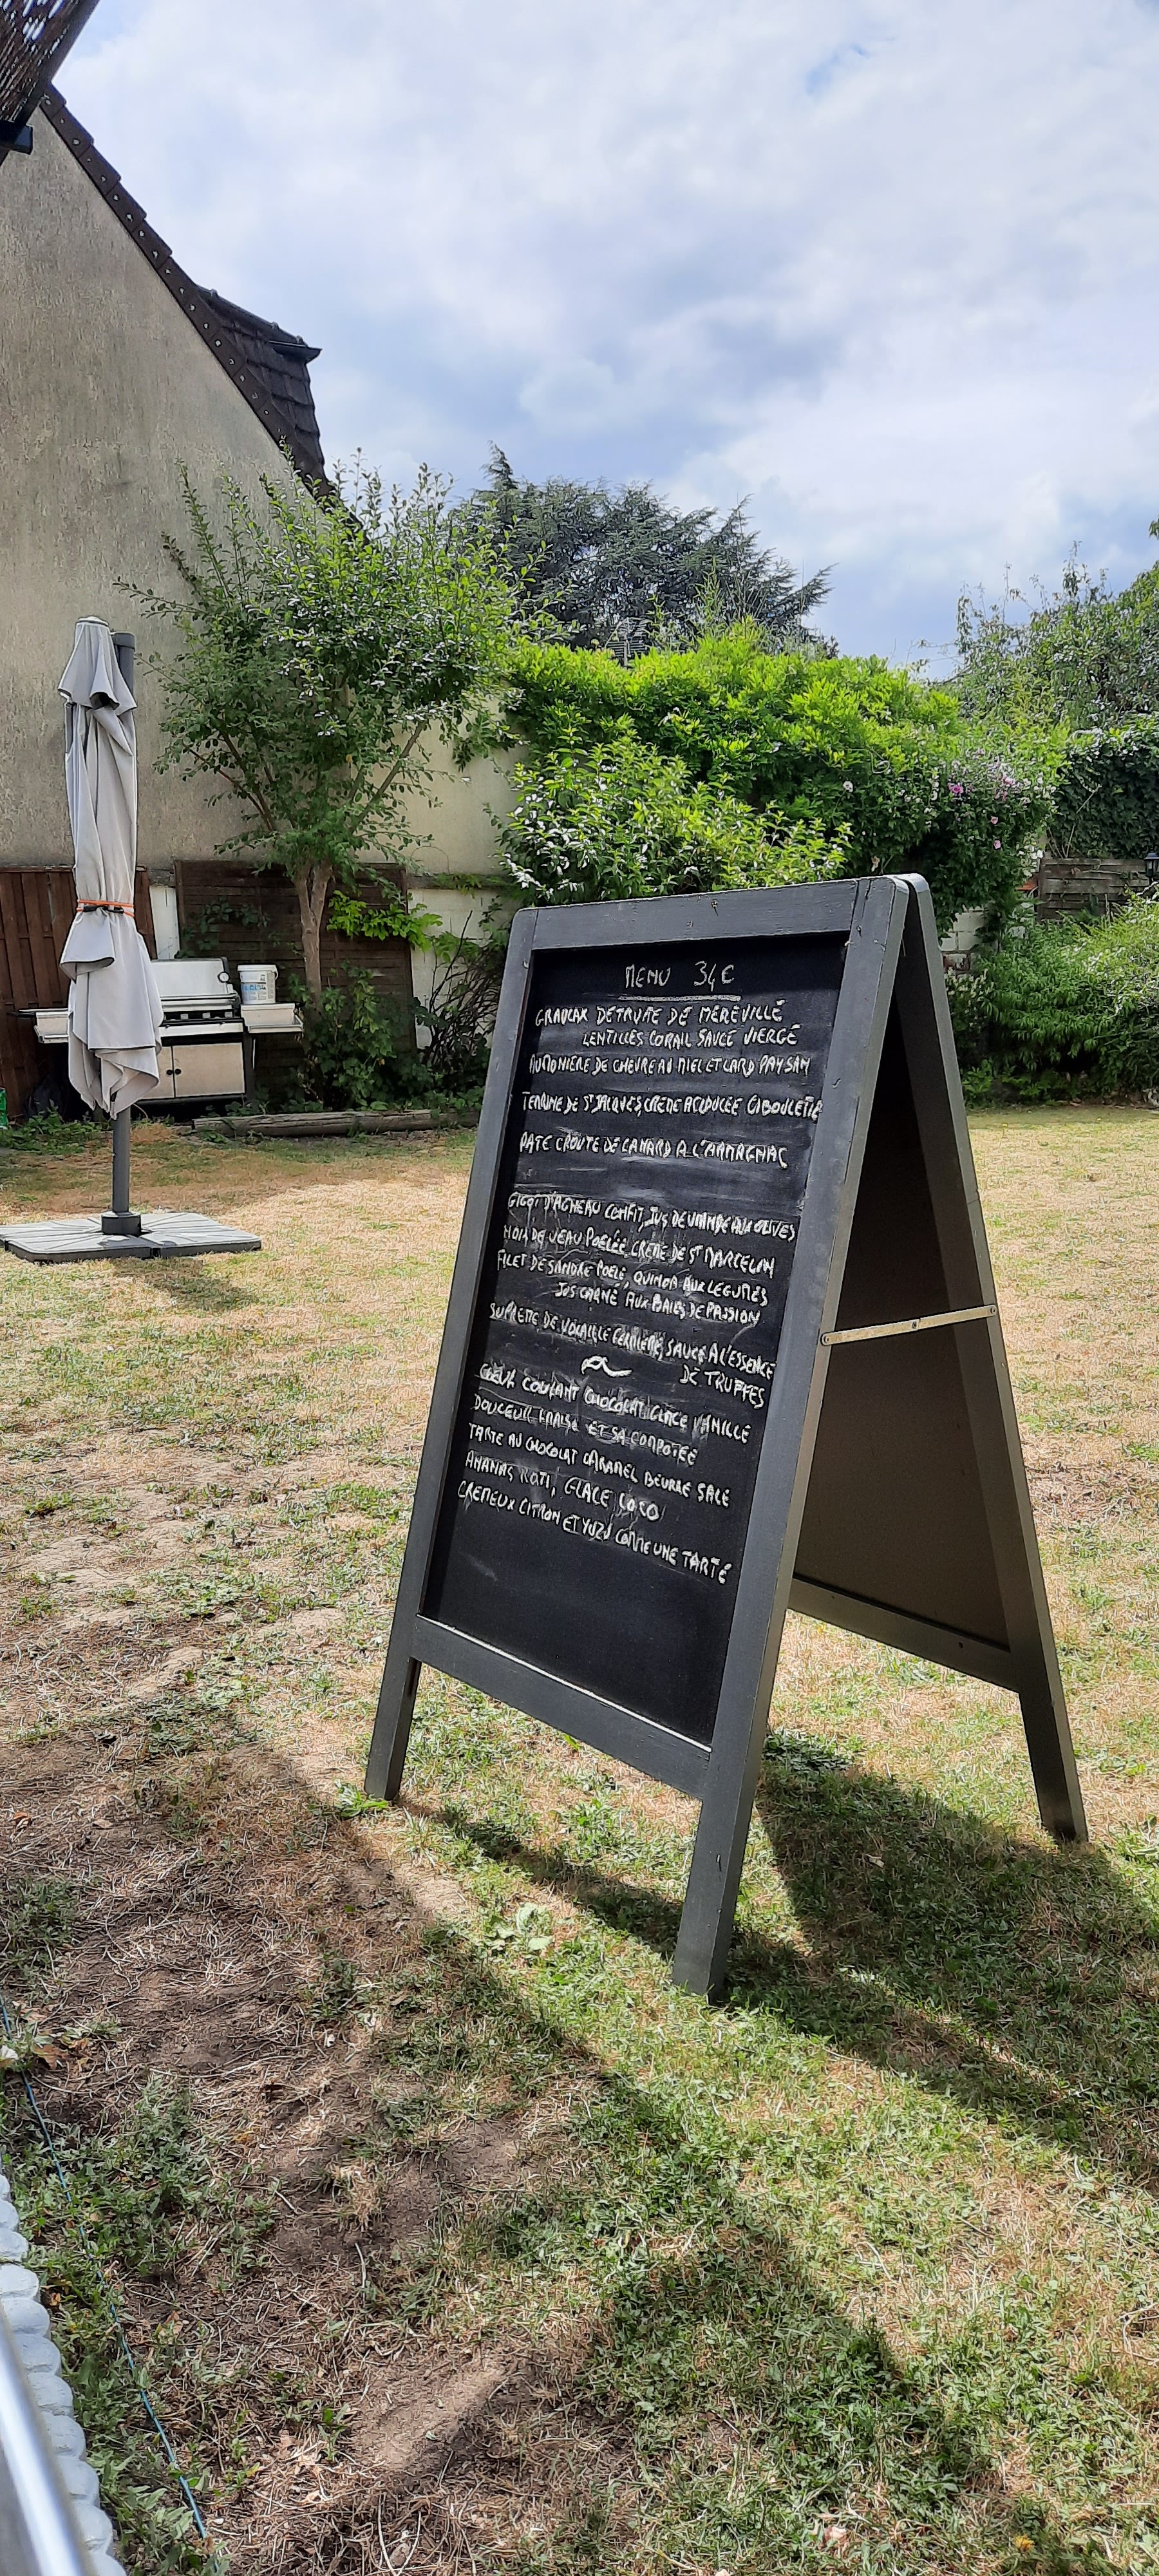 MENU 34€
GRAVLAX DE TRUITE DE MÉRÉVILLE
LENTILLES CORAIL SAUCE VIERGE
AUMONIÈRE DE CHEVRE AU MIEL ET LARD PAYSAN
TERRINE DE ST JACQUES, CREME ACIDULÉE CIBOULETTE
PATE CROUTE DE CANARD A L'ARMAGNAC
GIGOT D'AGNEAU CONFIT, JUS DE VIANDE AUX OLIVES
NOIX DE VEAU POELÉE CREME DE ST MARCELIN
FILET DE SANDRE POELÉ, QUINOA AUX LEGUMES
JUS CARNÉ AUX BAIES DE PASSION
SUPREME DE VOLAILLE FERMIERE, SAUCE A L'ESSENCE
DE TRUFFES
COEUR COULANT CHOCOLAT, GLACE VANILLE
DOUCEUR FRAISE ET SA COMPOTÉE
TARTE AU CHOCOLAT CARAMEL BEURRE SALE
ANANAS ROTI, GLACE COCO
CREMEUX CITRON ET YUZU COMME UNE TARTE